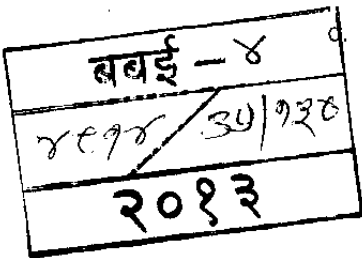 बबई - ४
४८१४ / ३५|१३०
२०१३